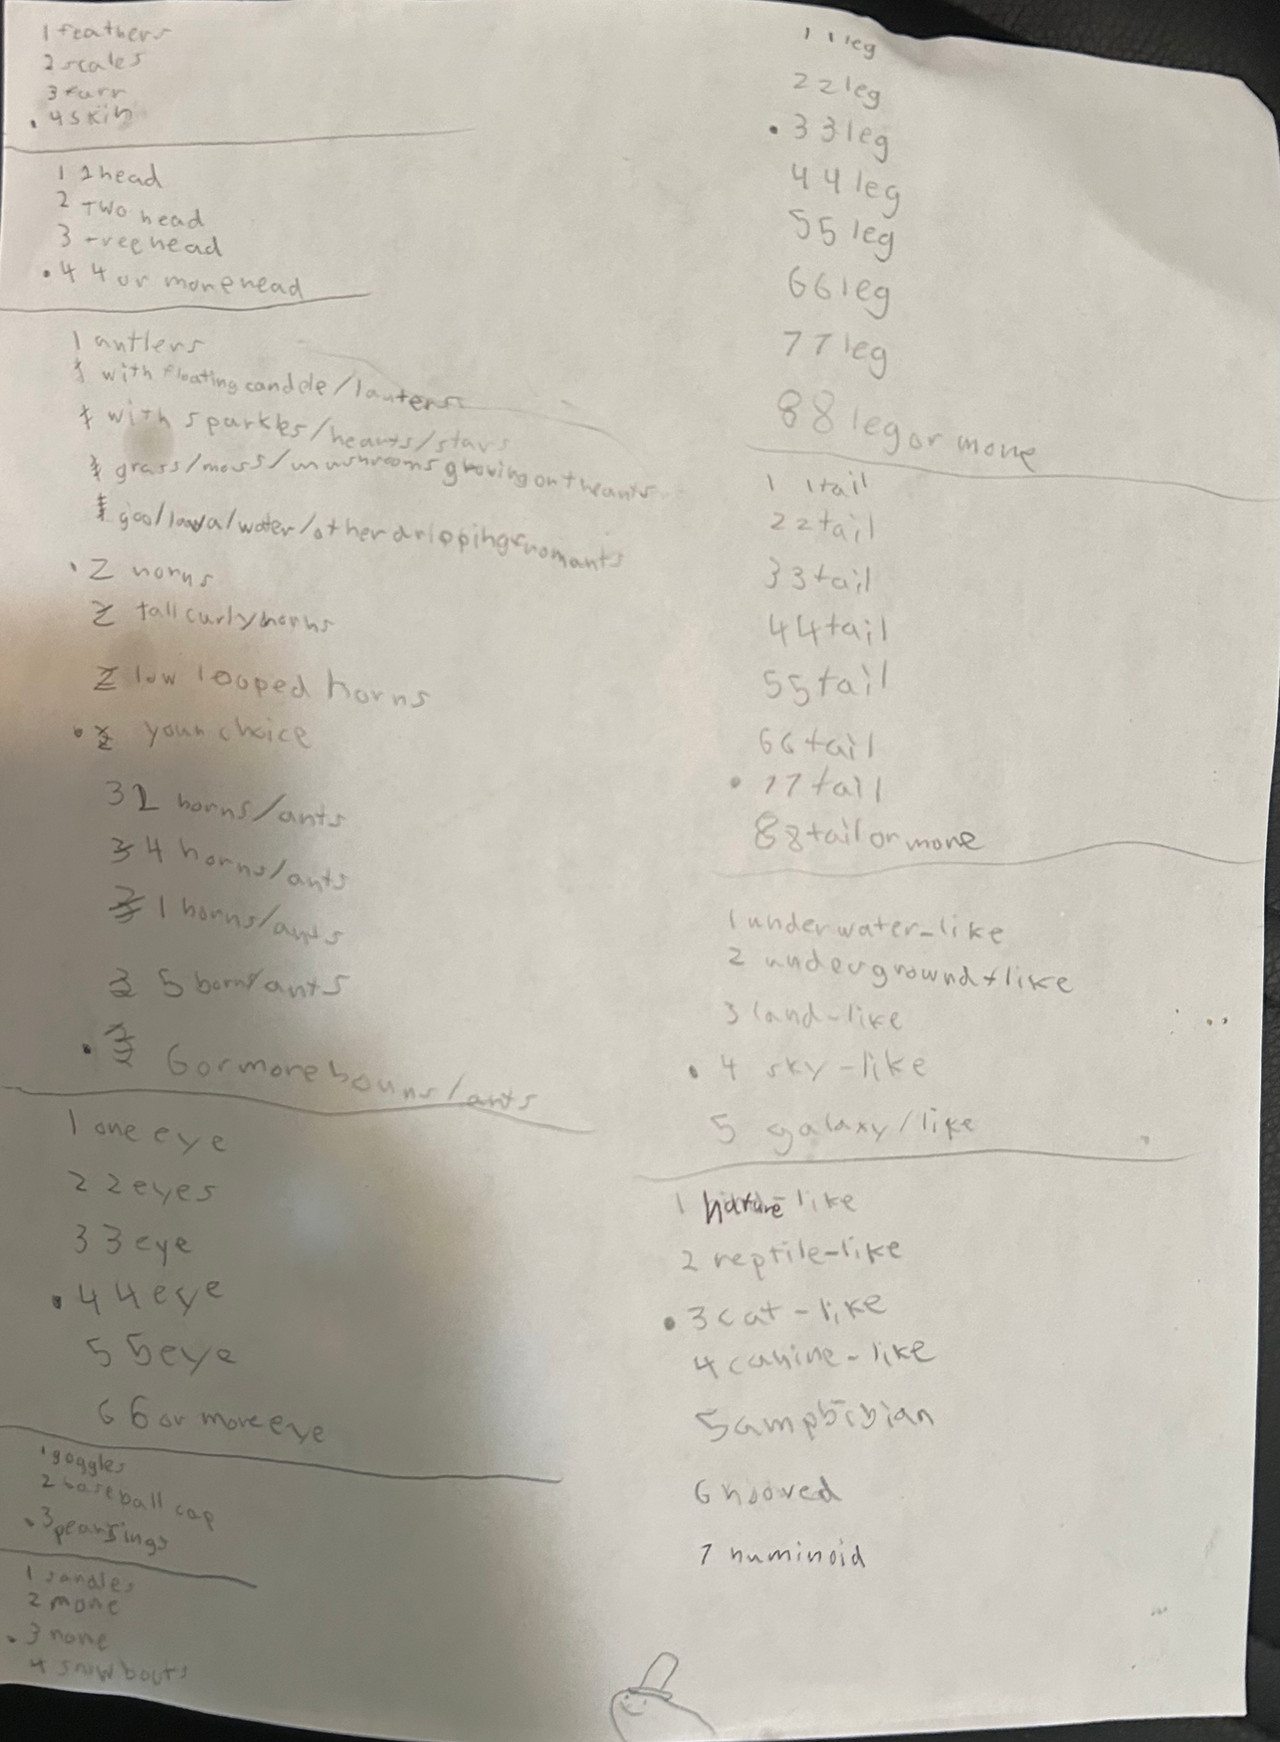 1 feathers
2 scales
3 furr
. 4 skin
1 1 head
2 two head
3 free head
. 4 4 or more head
1 antlers
1 with floating candele/lantens
1 with sparkles/hearts/stars
1 grass/moss/mushrooms growing on the ants
1 goo/lava/water/other dripping from ants
. 2 horns
2 tall curly horns
2 low looped horns
. 2 your choice
3 2 horns/ants
3 4 horns/ants
3 1 horns/ants
3 5 horn/ants
. 3 6 or more houns/ants
1 one eye
2 2 eyes
3 3 eye
. 4 4 eye
5 5 eye
6 6 or more eye
1 goggles
2 baseball cap
. 3 pearsings
1 sandles
2 mone
. 3 none
4 snow bouts
1 1 leg
2 2 leg
. 3 3 leg
4 4 leg
5 5 leg
6 6 leg
7 7 leg
8 8 leg or more
1 1 tail
2 2 tail
3 3 tail
4 4 tail
5 5 tail
6 6 tail
. 7 7 tail
8 8 tail or more
1 underwater-like
2 undergrownd-like
3 land-like
. 4 sky-like
5 galaxy/like
1 nature-like
2 reptile-like
. 3 cat-like
4 canine-like
5 amphibian
6 hooved
7 huminoid